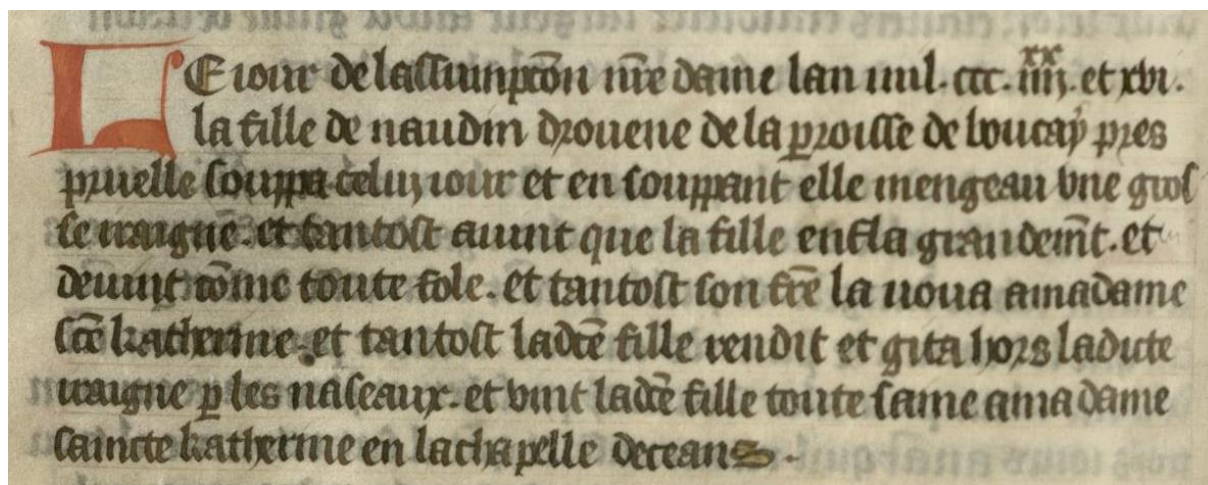 LE iour de lassumpcõn nr̃e dame lan mil. ccc. iiij^xx. et xvi.
la fille de naudin drouene de la ꝑroisse de loucaÿ pres
pruelle souppa celuy iour et en souppant elle mengeau vne gros
se iraigne. et tantost auint que la fille enfla grandem̃t. et
deuint cõme toute fole. et tantost son fr̃e la uoua a ma dame
sc̃e katherine. et tantost ladc̃e fille rendit et gita hors ladicte
iraigne ꝑ les naseaux. et vint ladc̃e fille toute saine a ma dame
saincte katherine en la chapelle de ceans.